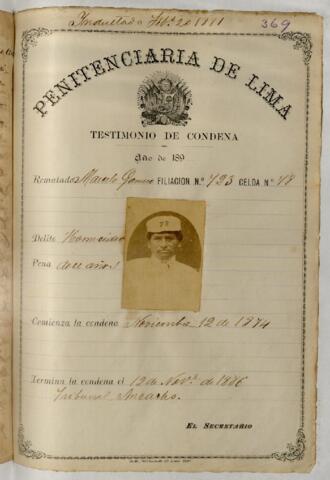 369
PENITENCIARIA DE LIMA
TESTIMONIO DE CONDENA
Año de 189
Rematado Marcelo FILIACION N.º 723 CELDA N.º 78
78
Delito Homicidio
Pena doce años
Comienza la condena Noviembre 12 de 1874
Termina la condena el 12 de Nov.e de 1886
Tribunal Ancachs.
EL SECRETARIO